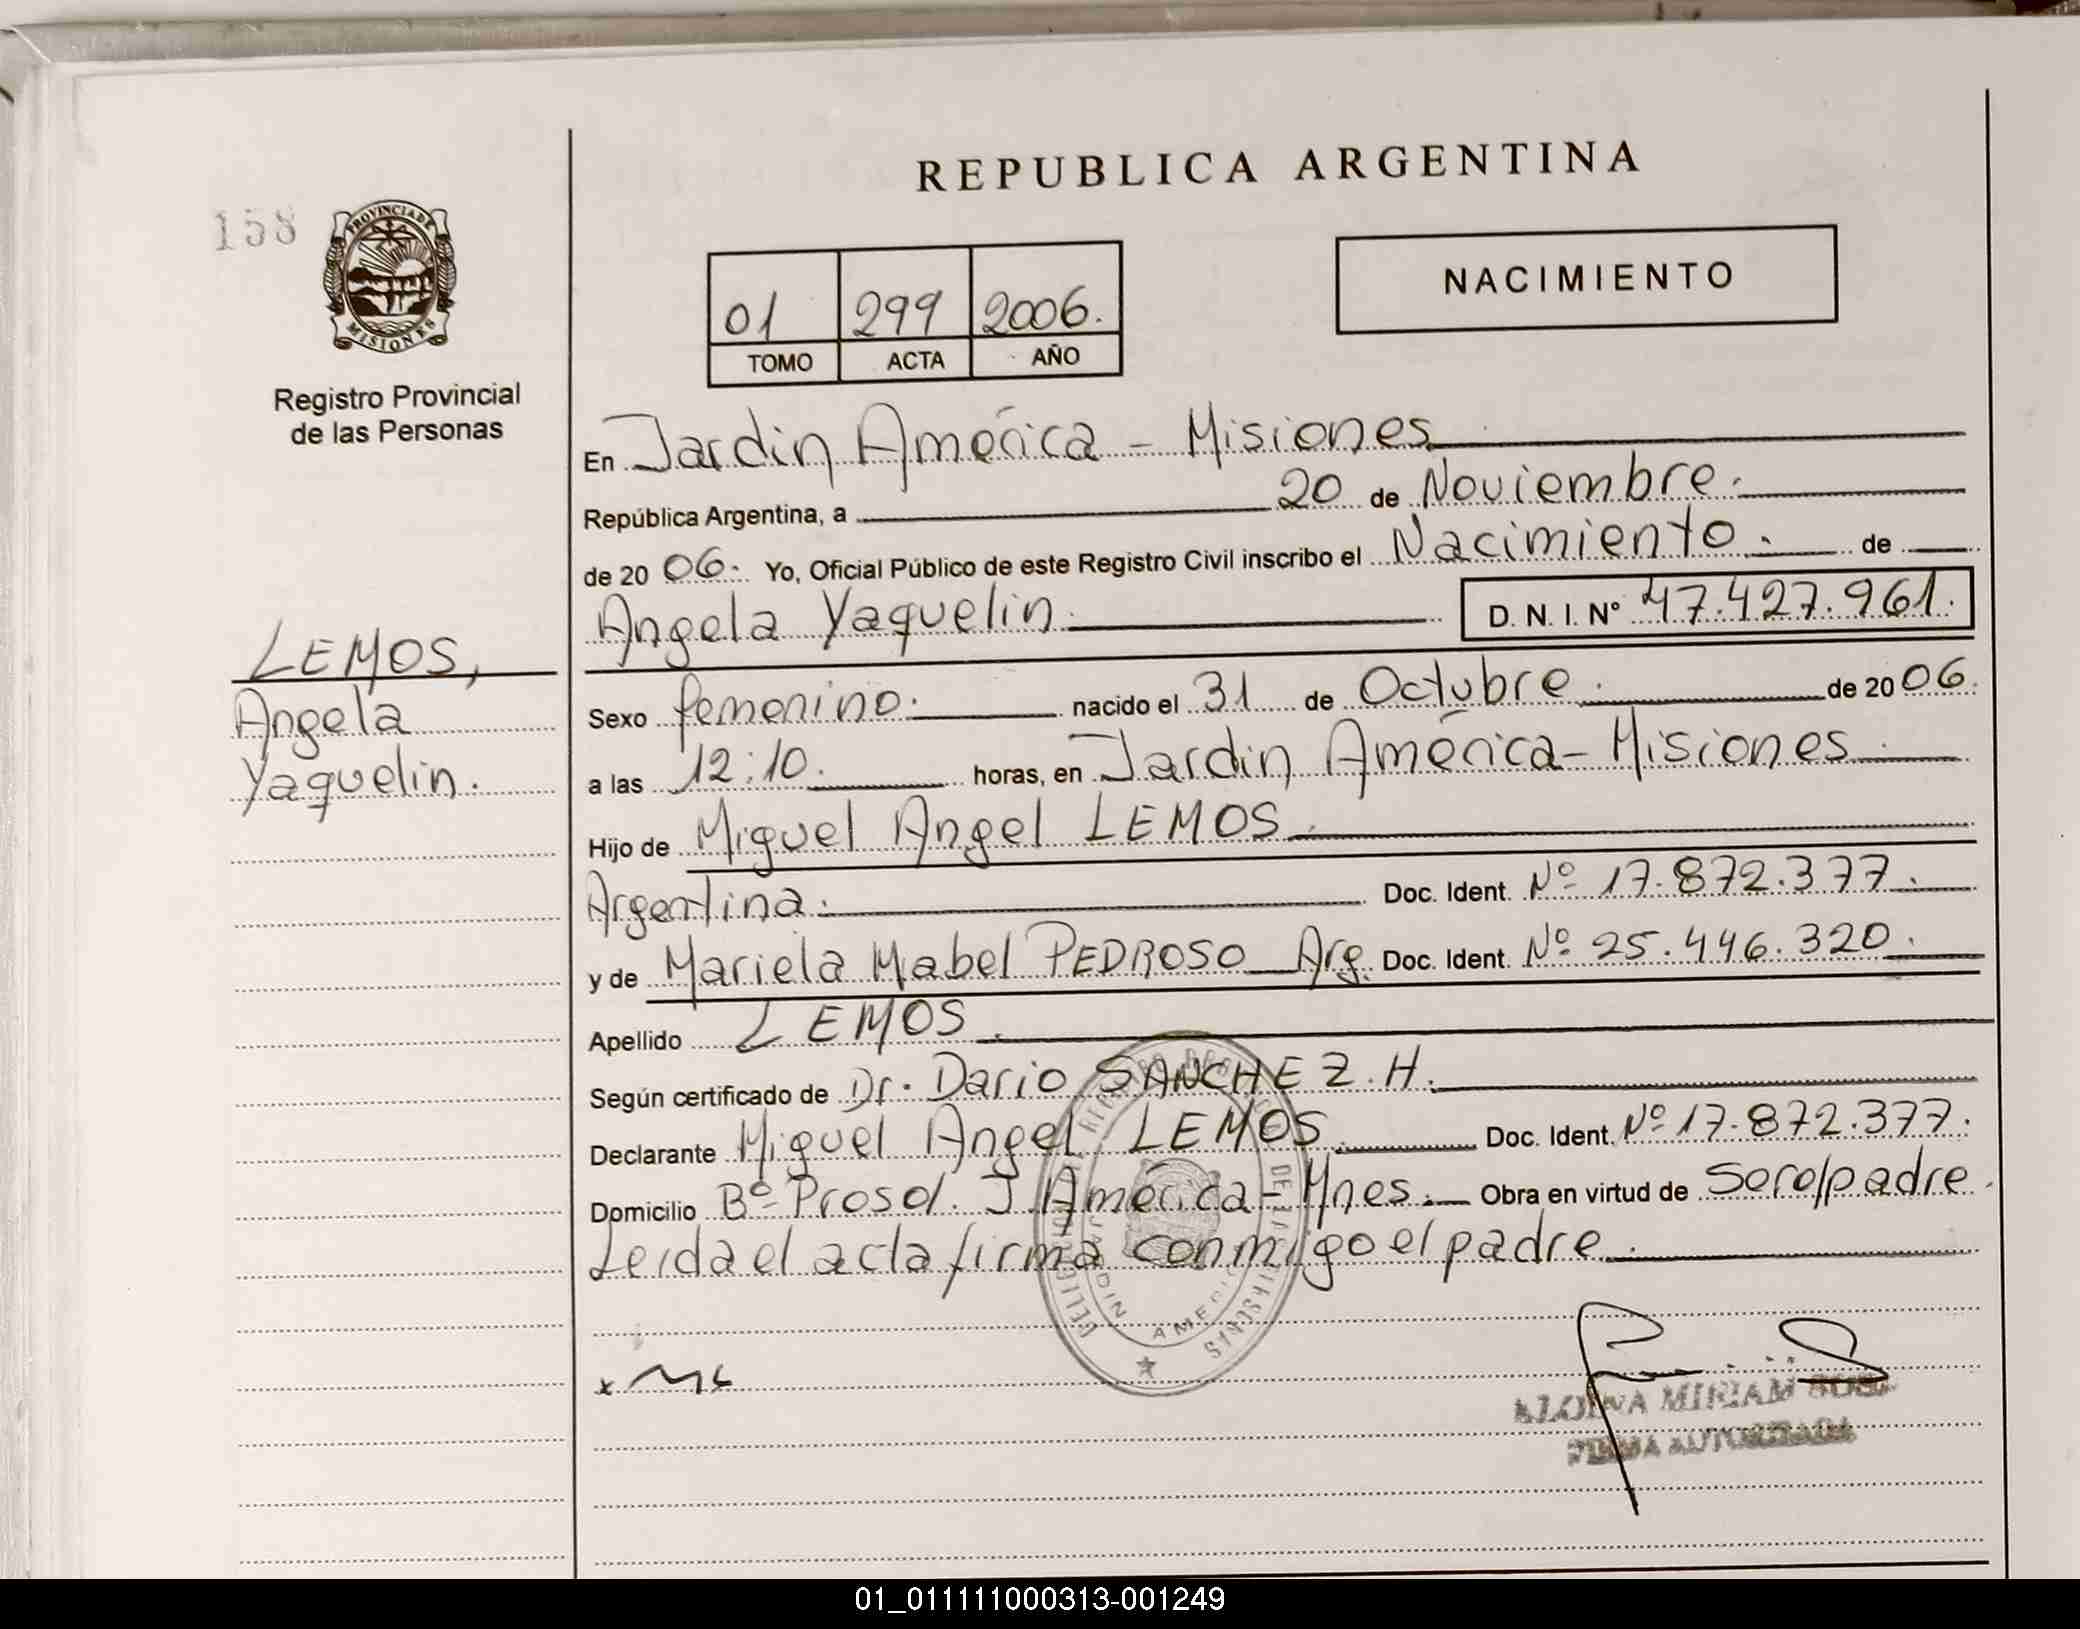 REPUBLICA ARGENTINA
158
PROVINCIA DE
MISIONES
Registro Provincial
de las Personas
NACIMIENTO
01 299 2006.
TOMO ACTA AÑO
En Jardin América - Misiones
República Argentina, a 20 de Noviembre.
de 20 06. Yo, Oficial Público de este Registro Civil inscribo el Nacimiento. de
Angela Yaquelin. D. N. I. Nº 47.427.961.
LEMOS,
Angela
Yaquelin.
Sexo femenino. nacido el 31 de Octubre. de 20 06.
a las 12:10. horas, en Jardin América - Misiones.
Hijo de Miguel Angel LEMOS
Argentina. Doc. Ident. Nº 17.872.377.
y de Mariela Mabel PEDROSO Arg. Doc. Ident. Nº 25.446.320.
Apellido LEMOS.
Según certificado de Dr. Dario SANCHEZ. H.
Declarante Miguel Angel LEMOS. Doc. Ident. Nº 17.872.377.
Domicilio Bº Prosol. J. América - Mnes. Obra en virtud de ser el padre.
Leida el acta firma conmigo el padre.
JARDIN AMERICA
DE LAS PERSONAS
x
MIRIAM
FIRMA AUTORIZADA
01_011111000313-001249